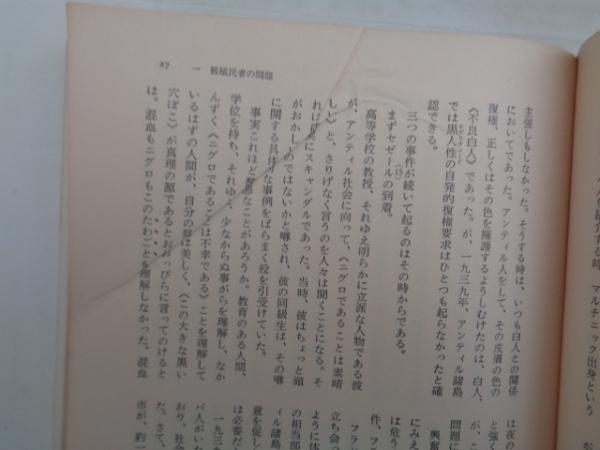 27 一 被植民者の問題
主張しもしなかった。そうする時は、いつも白人との関係
においてであった。アンティル人をして、その皮膚の色の
復権、正しくはその色を擁護するようしむけたのは、白人、
《不良白人》であった。が、一九三九年、アンティル諸島
では黒人性の自発的復権要求はひとつも起らなかったと確
認できる。
三つの事件が続いて起るのはその時からである。
まずセゼールの到着。
(13)
高等学校の教授、それゆえ明らかに立派な人物である彼
が、アンティル社会に向って、《ニグロであることは素晴
しい》と、さりげなく言うのを人々は聞くことになる。そ
れは確かにスキャンダルであった。当時、彼はちょっと頭
がおかしいのではないかと噂され、彼の同級生は、その噂
に関する具体的な事例をばらまく役を引受けていた。
事実これほど
なことがあろうか。教育のある人間、
学位を持ち、それゆえ、少なからぬ事がらを理解し、なか
んずく《ニグロであることは不幸である》ことを理解して
いるはずの人間が、自分の
は美しく、《この大きな黒い
穴ぼこ》が真理の源であるとおおっぴらに言ってのけると
は。混血もニグロもこのたわごとを理解しなかった。混血
マルチニック出身という
は夜の
と強く
問題に
興奮
にみえ
は危う
件、フラ
フラン
立ち会っ
ように体
の相当部
ィル諸島
意を促し
は必要だ
一九三
バ人がい
おり、社会
た。さて、
市が、約一